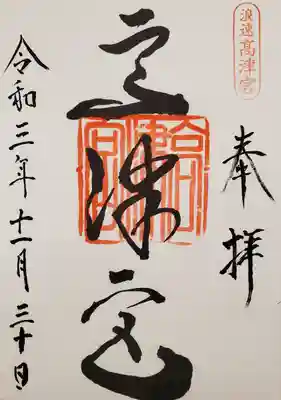 浪速高津宮
奉拝
高津宮
令和三年十一月三十日